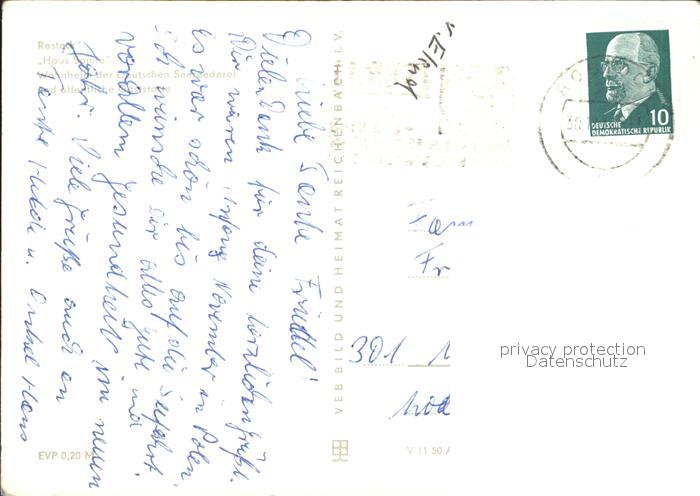 Rostock
„Haus Sonne"
Wohnheim der Deutschen Seereederei
und öffentliche Gaststätte
Liebe Tante Friedel!
Vielen Dank für deine herzlichen Grüße.
Wir waren Anfang November in Polen
es war schön bis auf die Seefahrt.
Ich wünsche Dir alles gute und
vor allem Gesundheit im neuen
Jahr. Viele Grüße auch an
Tante Hilde u. Onkel Hans
v. Erna
VEB BILD UND HEIMAT REICHENBACH i. V.
10
DEUTSCHE
DEMOKRATISCHE REPUBLIK
Fam
Fr
301
privacy protection
Datenschutz
EVP 0,20 M
V 11 50 A